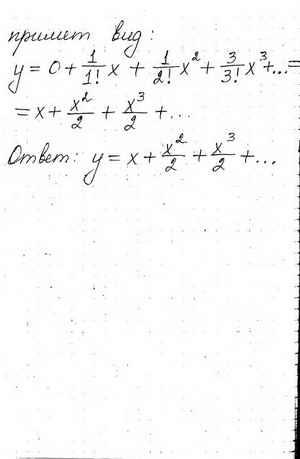 примет вид:
y = 0 + \frac{1}{1!}x + \frac{1}{2!}x^2 + \frac{3}{3!}x^3 + ... =
= x + \frac{x^2}{2} + \frac{x^3}{2} + ...
Ответ: y = x + \frac{x^2}{2} + \frac{x^3}{2} + ...